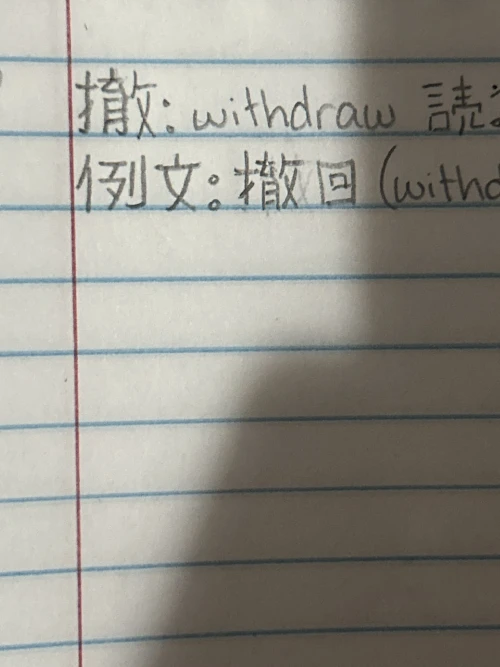 撤: withdraw 読
例文: 撤回 (withd